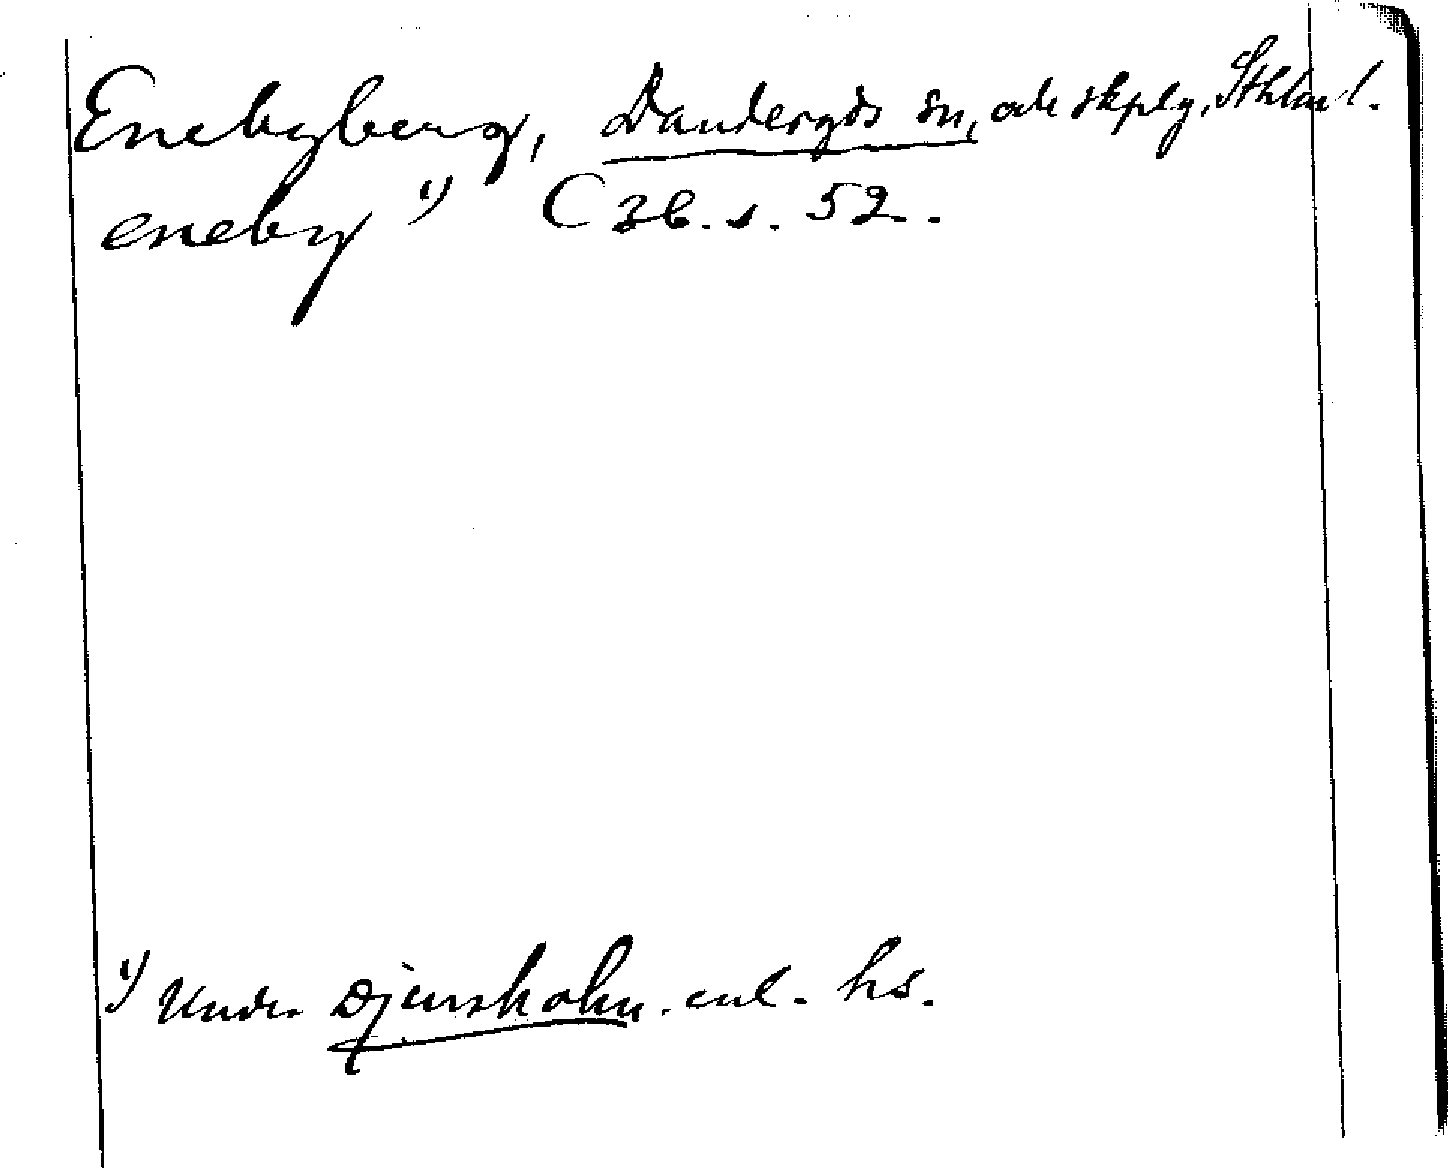 Enebyberg, Danderyds sn, och skplg, Sthlms l.
eneby 1) C 36. s. 52.
1) Under Djursholm. enl. hs.